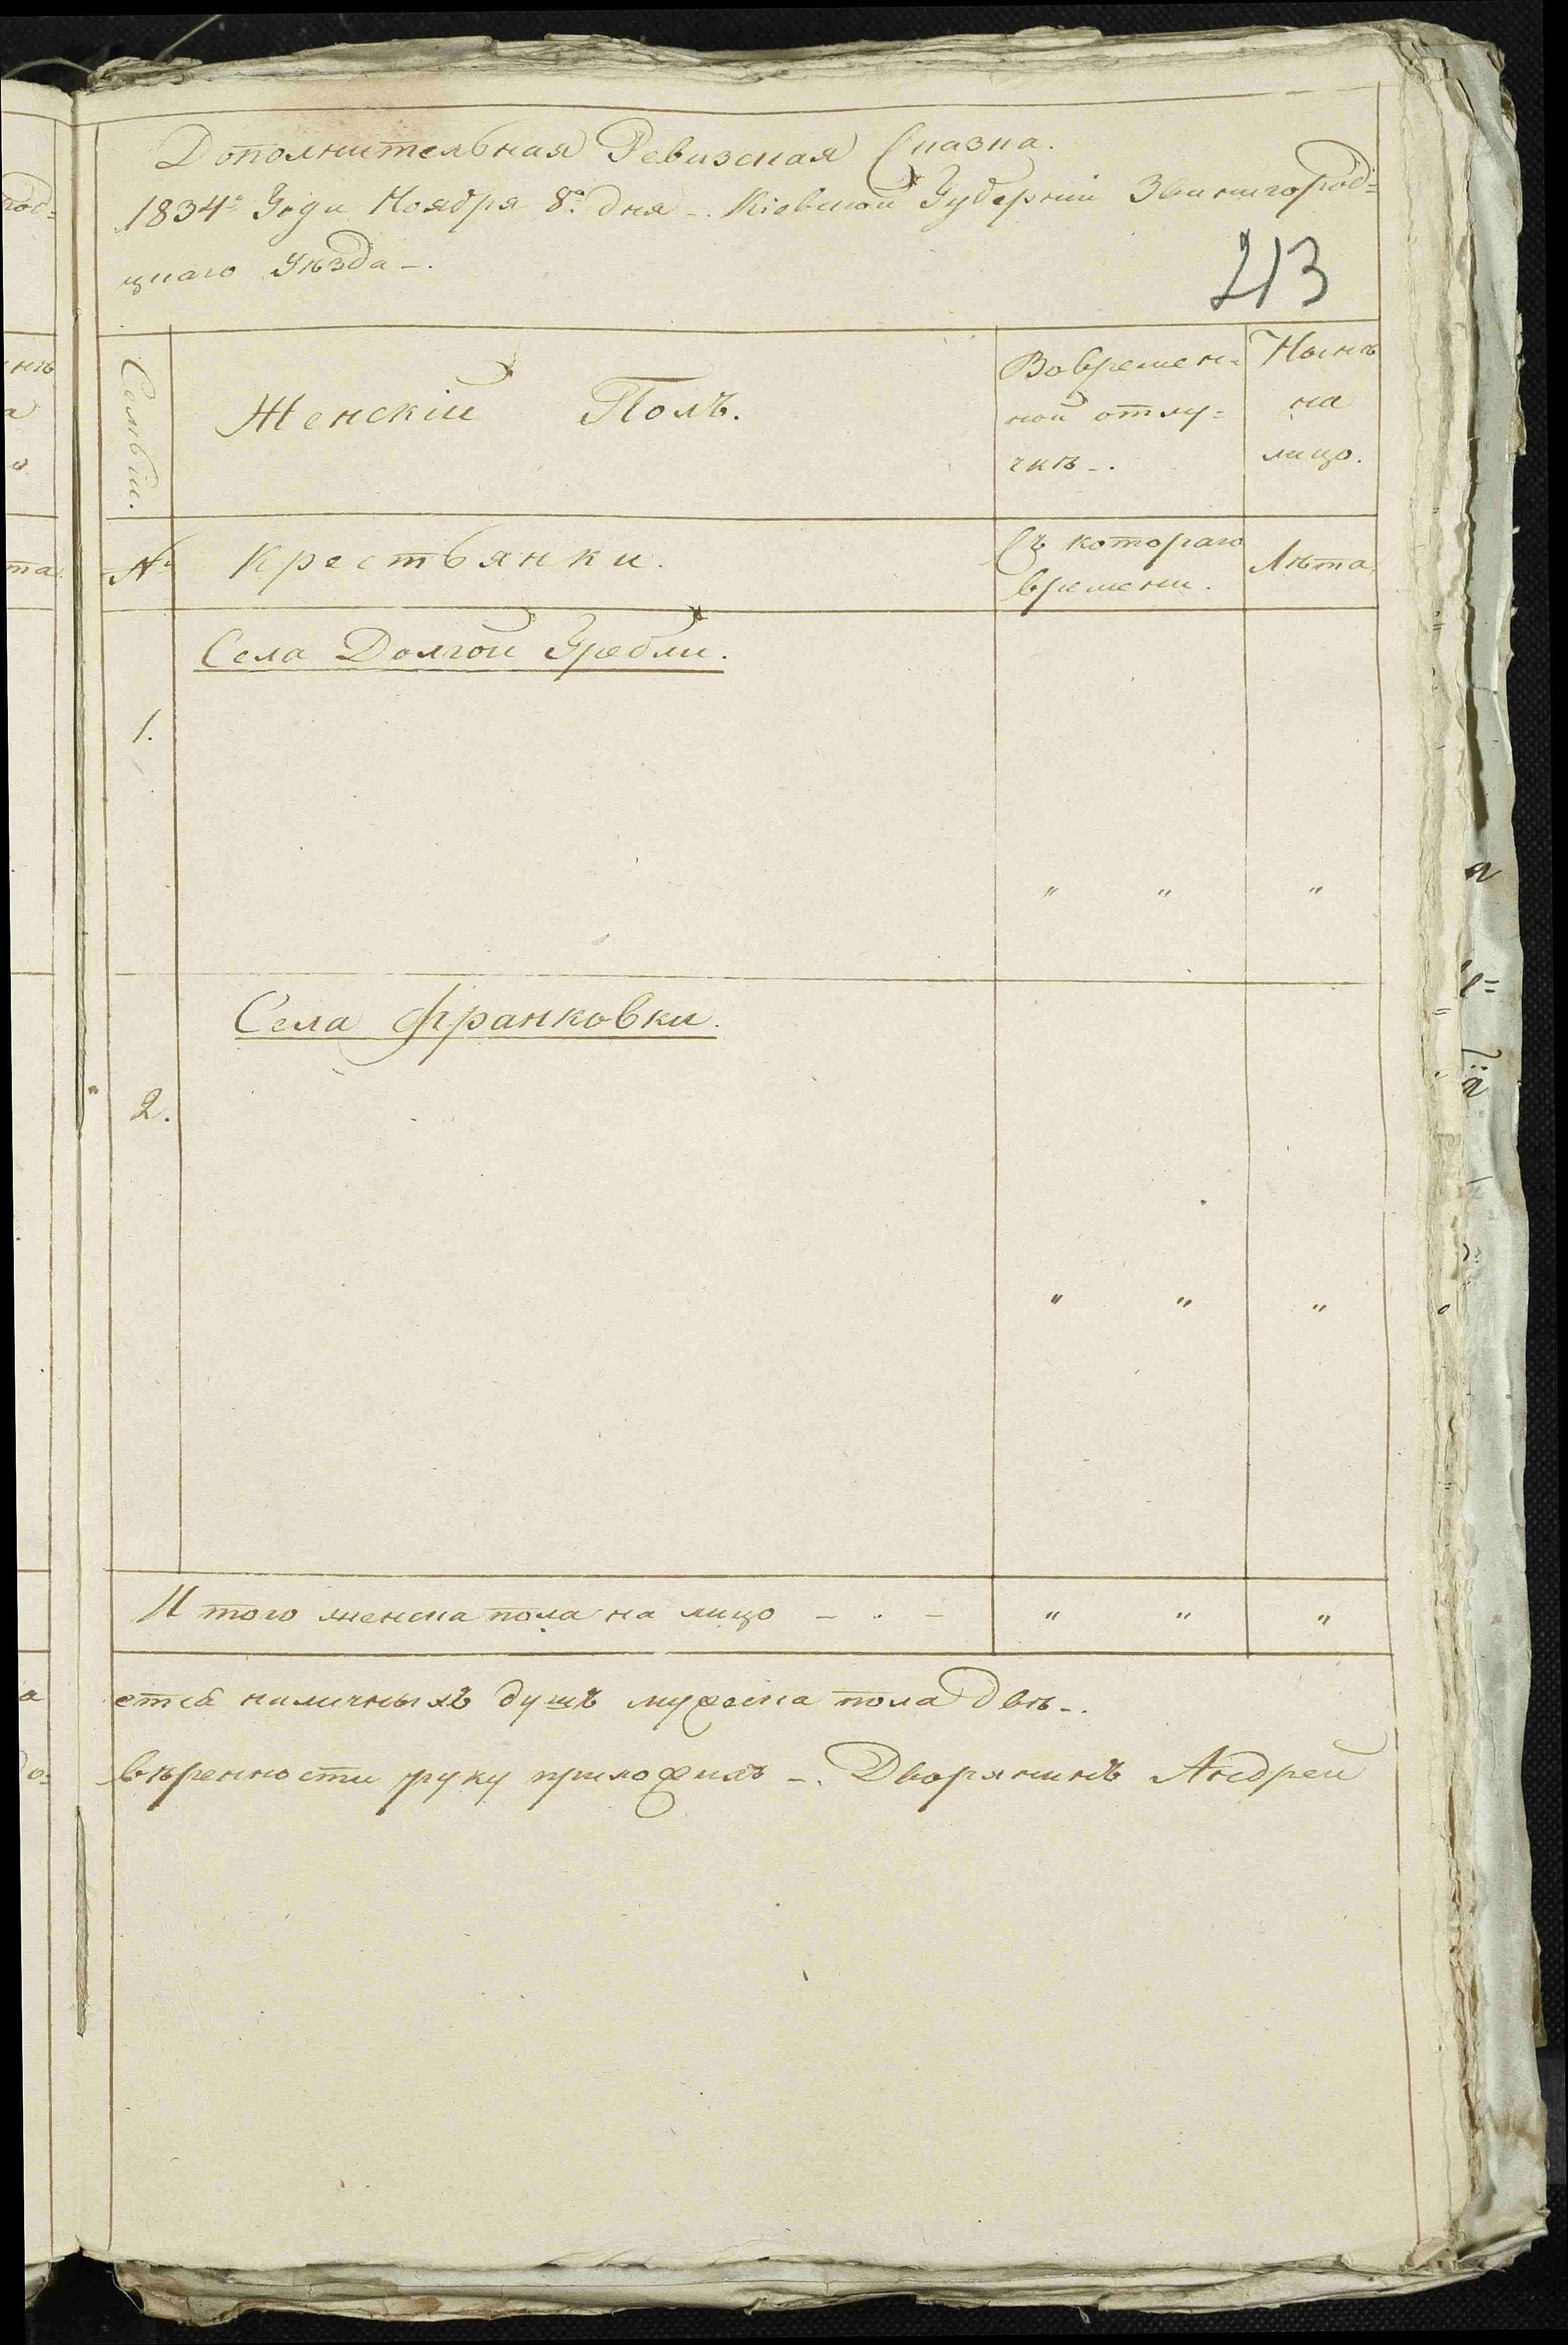 Дополнительная Ревизская Сказка.
1834го Года Ноября 8го дня -. Кіевской Губерніи Звинигород=
цкаго Уѣзда -.
213
Семьи.
Женскій Полъ.
Во времен=
ной отлу=
чкѣ -.
Нынѣ
на
лицо.
№
Крестьянки.
Съ котораго
времени.
Лѣта.
Села Долгой Гребли.
1.
" " "
Села Франковки.
2.
" " "
И того женска пола на лицо - . - " " "
ется наличныхъ душъ мужеска пола двѣ -.
вѣренности руку приложилъ -. Дворянинъ Андрей